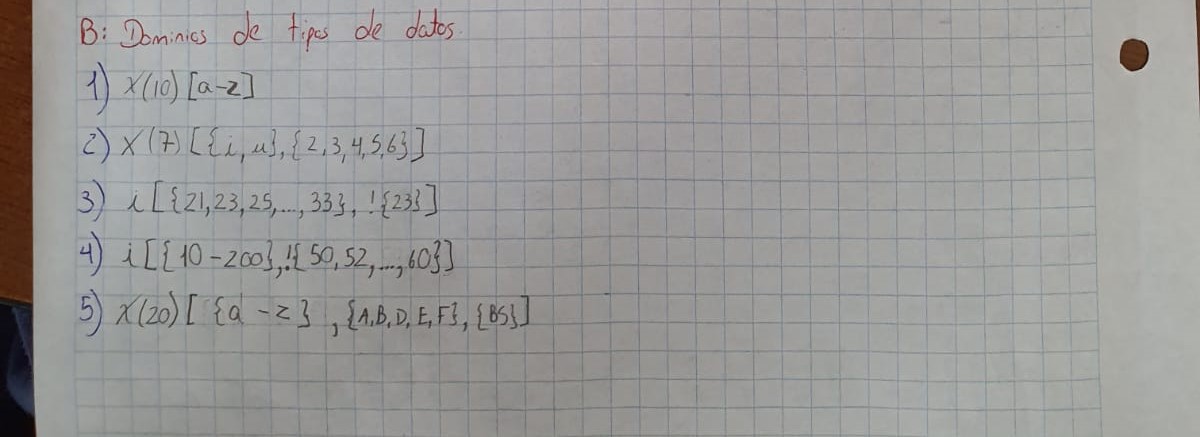 B: Dominios de tipos de datos.
1) X(10) [a-z]
2) X(7) [{i,u},{2,3,4,5,6}]
3) i[{21,23,25,...,33}, !{23}]
4) i[{10-200},!{50,52,...,60}]
5) X(20) [ {a-z} ,{A,B,D,E,F}, {BS}]